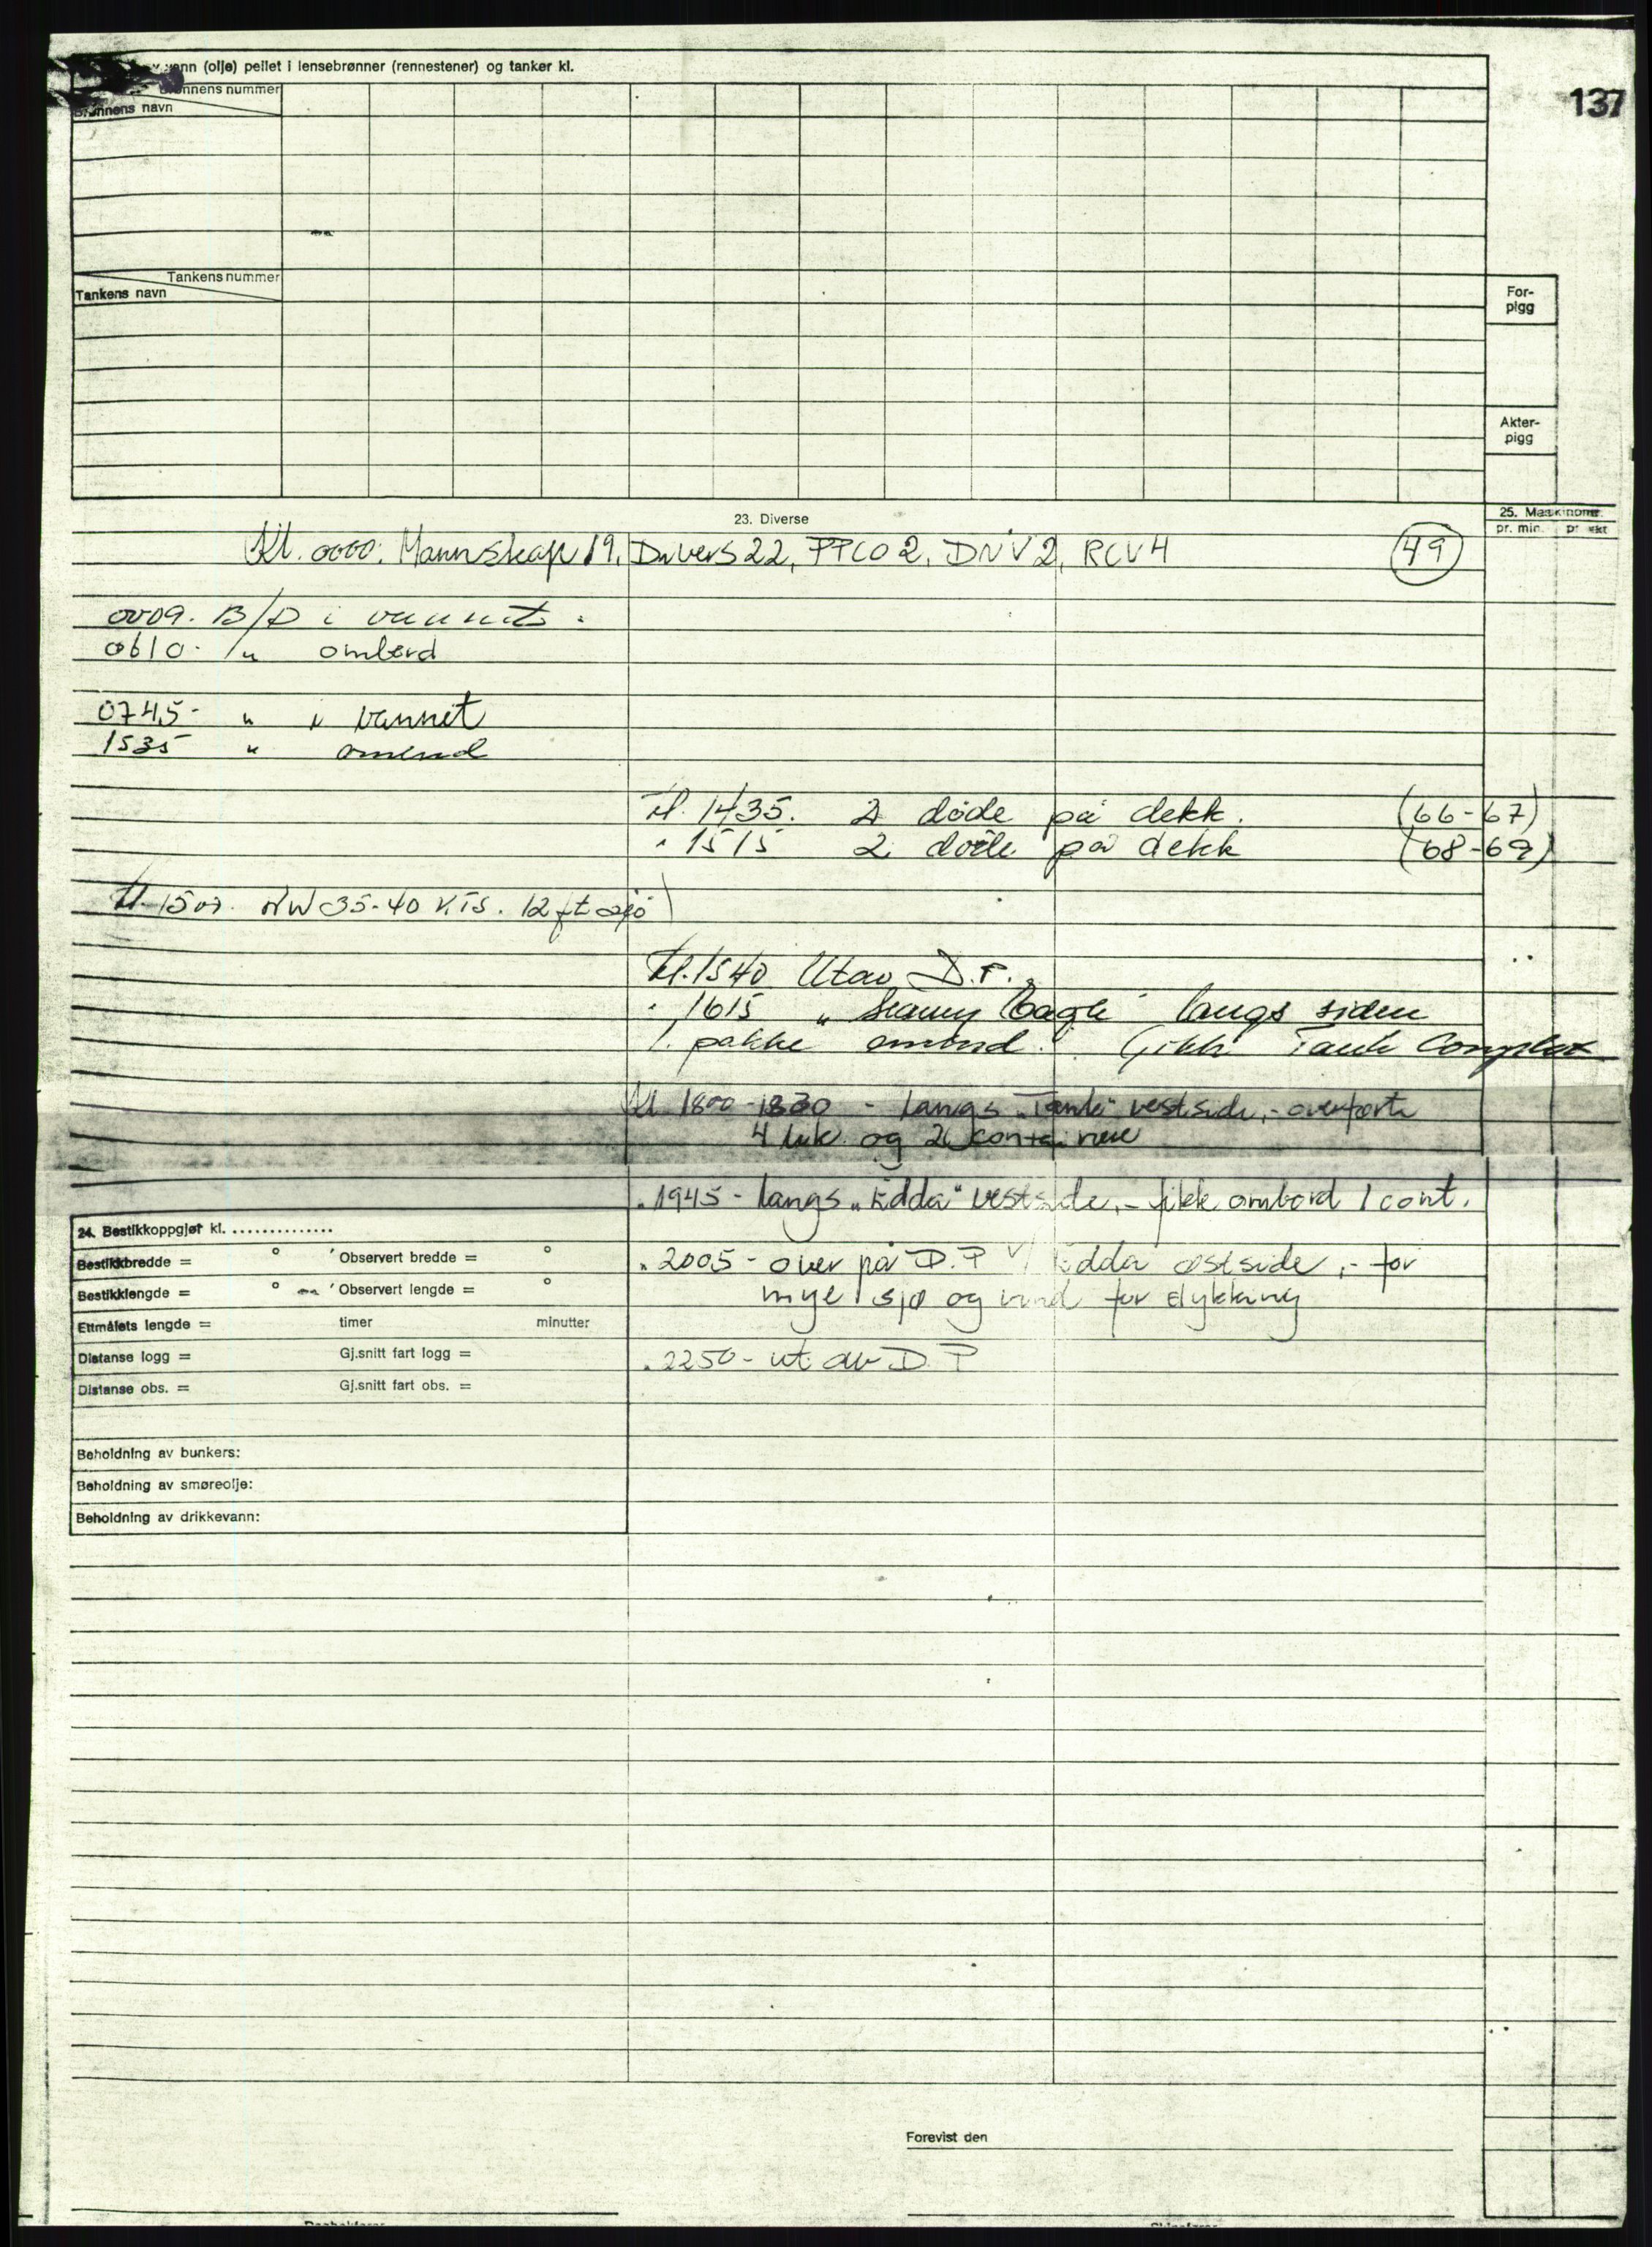 vann (olje) peilet i lensebrønner (rennestener) og tanker kl.
Brønnens nummer
Brønnens navn
137
Tankens nummer
Tankens navn
For-
pigg
Akter-
pigg
23. Diverse
25. Maskinomr.
pr. min. pr. vkt
Kl. 0000. Mannskap 19, Divers 22, PPCO 2, DNV 2, RCV 4 (49)
0009. B/D i vannet.
0610. " ombord
0745- " i vannet
1535 " ombord
Kl. 1435. 2 døde på dekk. (66-67)
" 1515 2 døde på dekk (68-69)
Kl. 1500. NW 35-40 KTS. 12 ft sjø
Kl. 1540 Ut av D.P.
" 1615 " Seaway Eagle" langs siden
1. pakke ombord. Gikk Tank Complex
Kl 1800-1830 - langs "Tank" vestside, - overførte
4 luk. og 2 containere
" 1945 - langs "Edda" vestside, - fikk ombord 1 cont.
24. Bestikkoppgjør kl. ..............
Bestikkbredde = ° ' Observert bredde = °
" 2005 - over på D.P v/ Edda østside, - for
Bestikklengde = ° ' Observert lengde = °
mye sjø og vind for dykking
Ettmålets lengde = timer minutter
Distanse logg = Gj.snitt fart logg =
" 2250 - ut av D.P
Distanse obs. = Gj.snitt fart obs. =
Beholdning av bunkers:
Beholdning av smøreolje:
Beholdning av drikkevann:
Forevist den